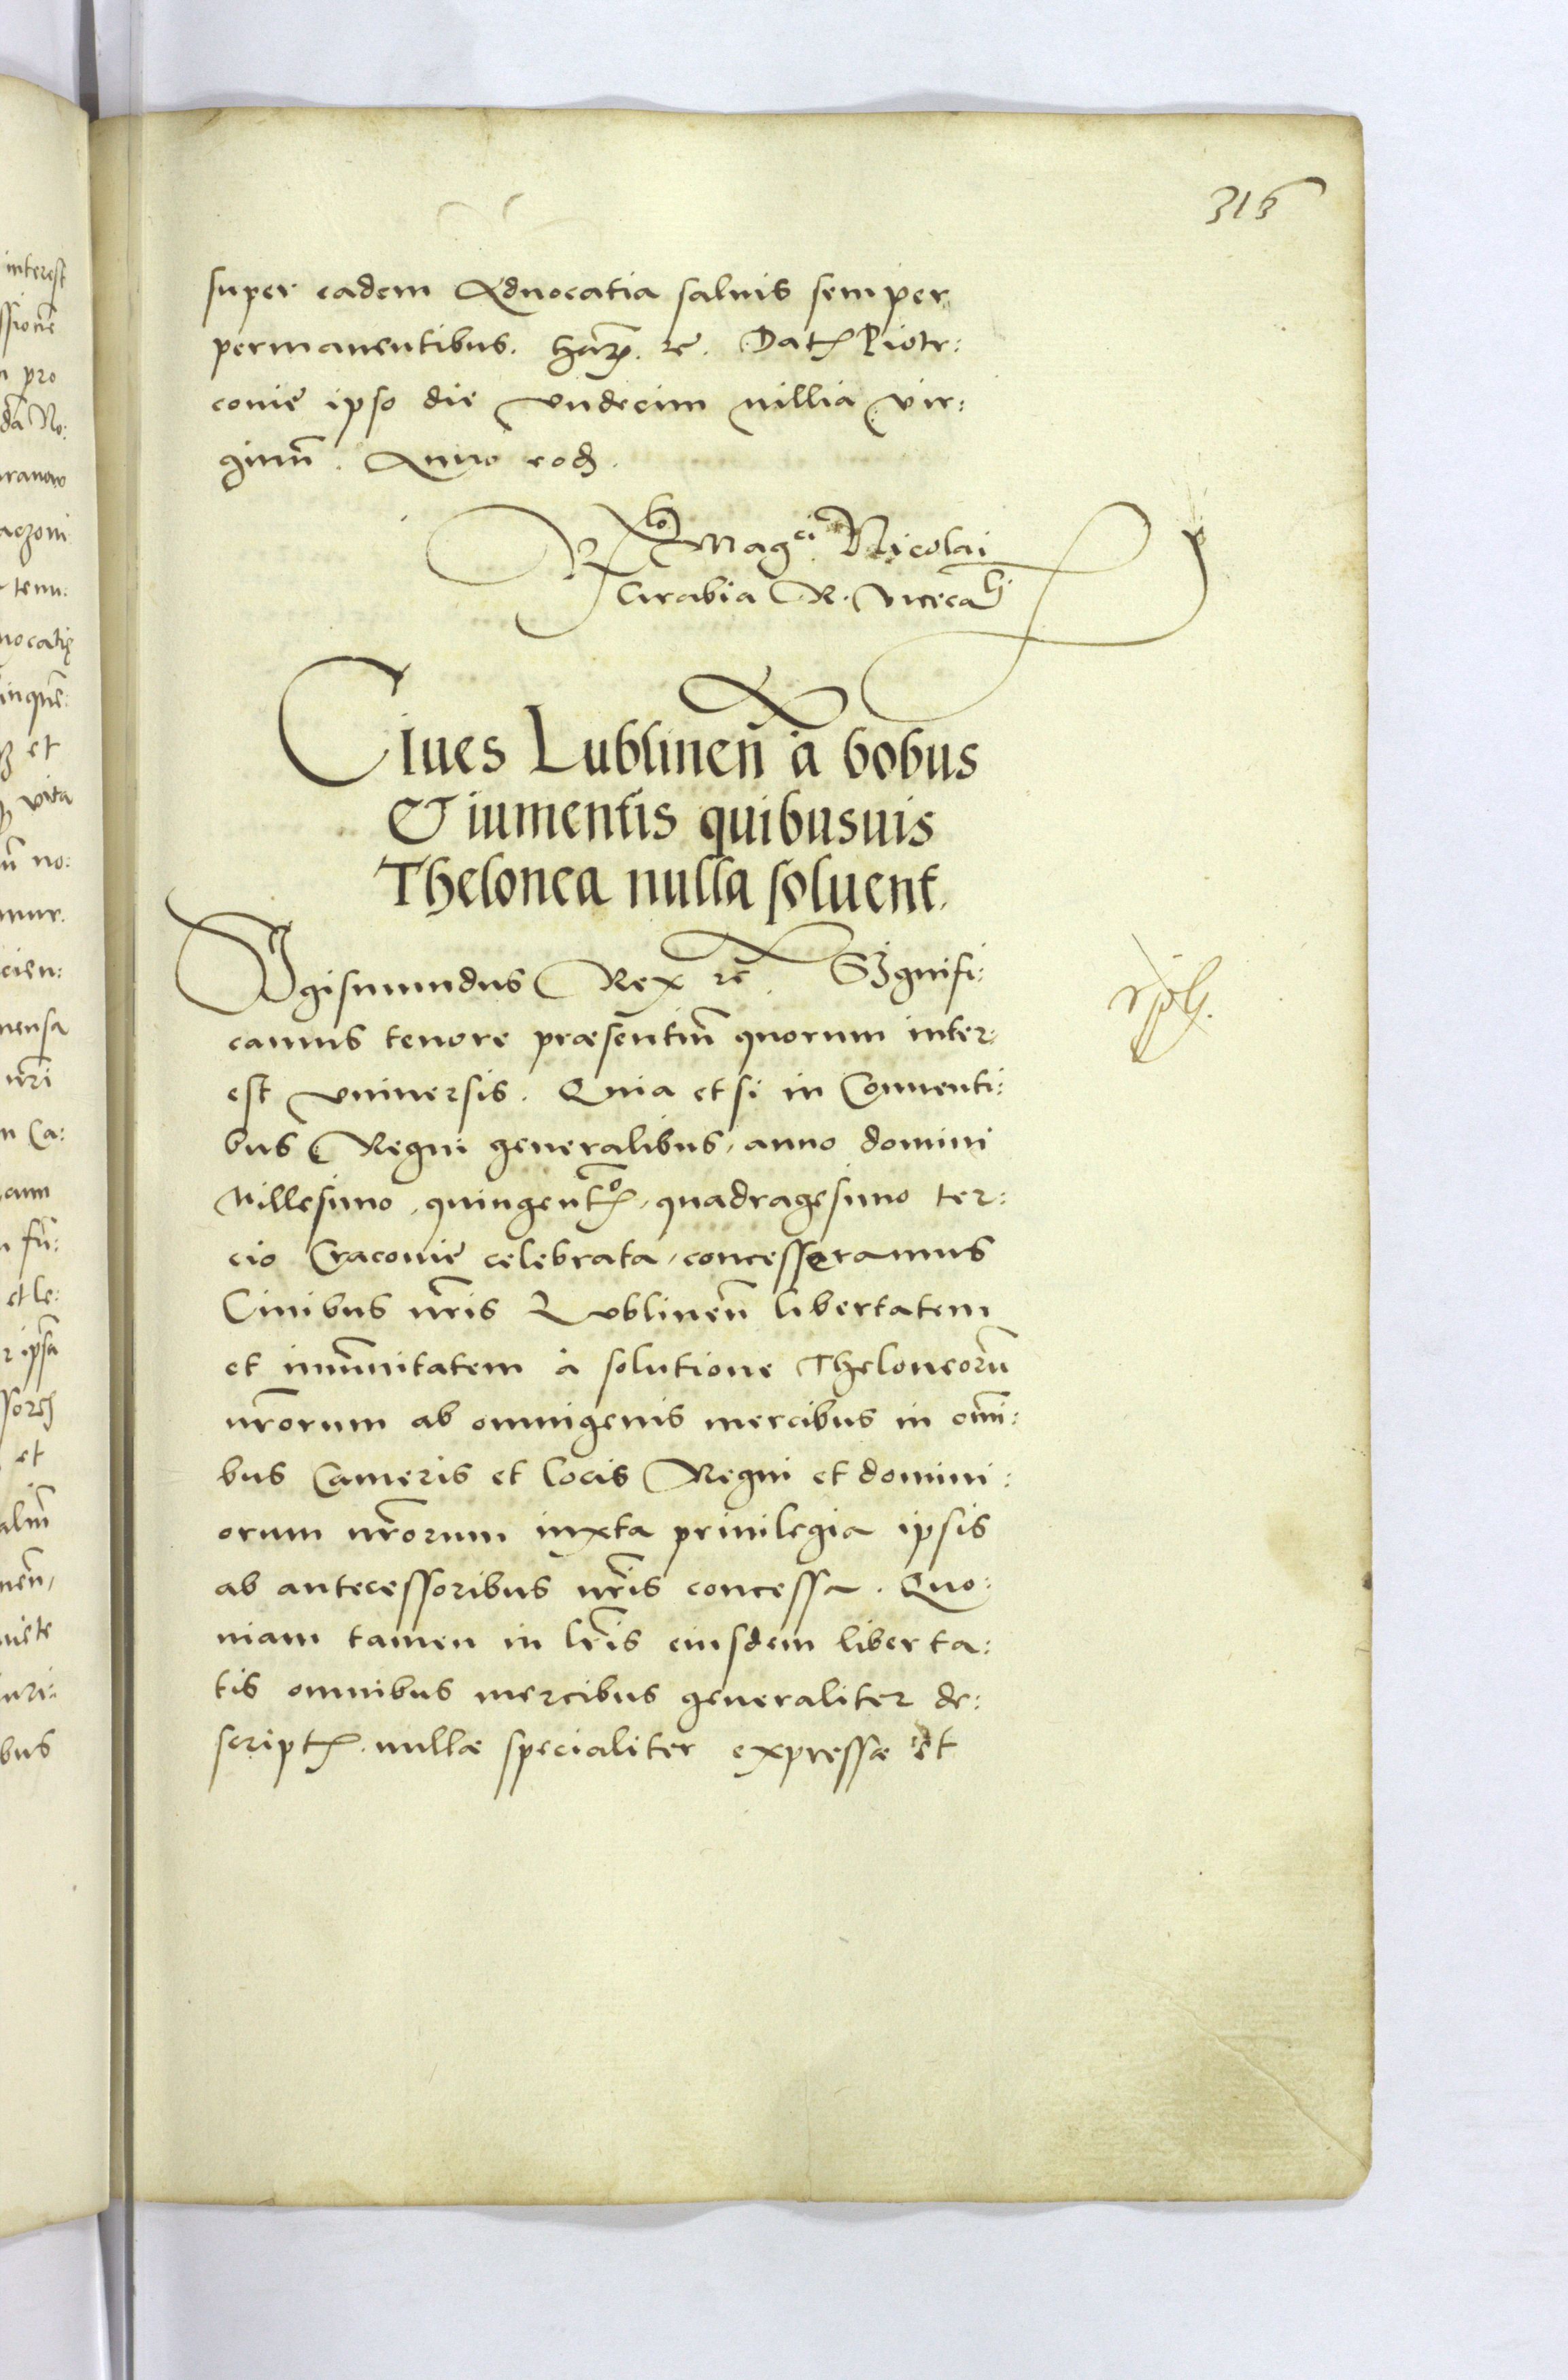 315
super eadem Aduocatia saluis semper
permanentibus. har. rc. Dat Piotr:
couie ipso die vndecim millia vir:
ginũ. Anno eod.
Rlo Magci Nicolai
Grabia R. vicecan
Ciues Lublinen̄ à bobus
Et iumentis quibusuis
Thelonea nulla soluent.
Sigismundus Rex rc. Signifi:
camus tenore præsentiũ quorum inter
est vniuersis. Quia etsi in Conuenti:
bus Regni generalibus, anno domini
Millesimo, quingento, quadragesimo ter:
cio Cracouie celebrata, concesseramus
Ciuibus nr̃is Lublinen̄ libertatem
et imũnitatem à solutione Theloneorũ
nr̃orum ab omnigenis mercibus in omi:
bus Cameris et locis Regni et domini:
orum nr̃orum iuxta priuilegia ipsis
ab antecessoribus nr̃is concessa. Quo:
niam tamen in lr̃is eiusdem liberta:
tis omnibus mercibus generaliter de:
script. nullæ specialiter expressæ et
interest
ssionẽ
pro
et
vita
no:
cien:
mensa
nr̃i
Ca:
et le:
et
bus